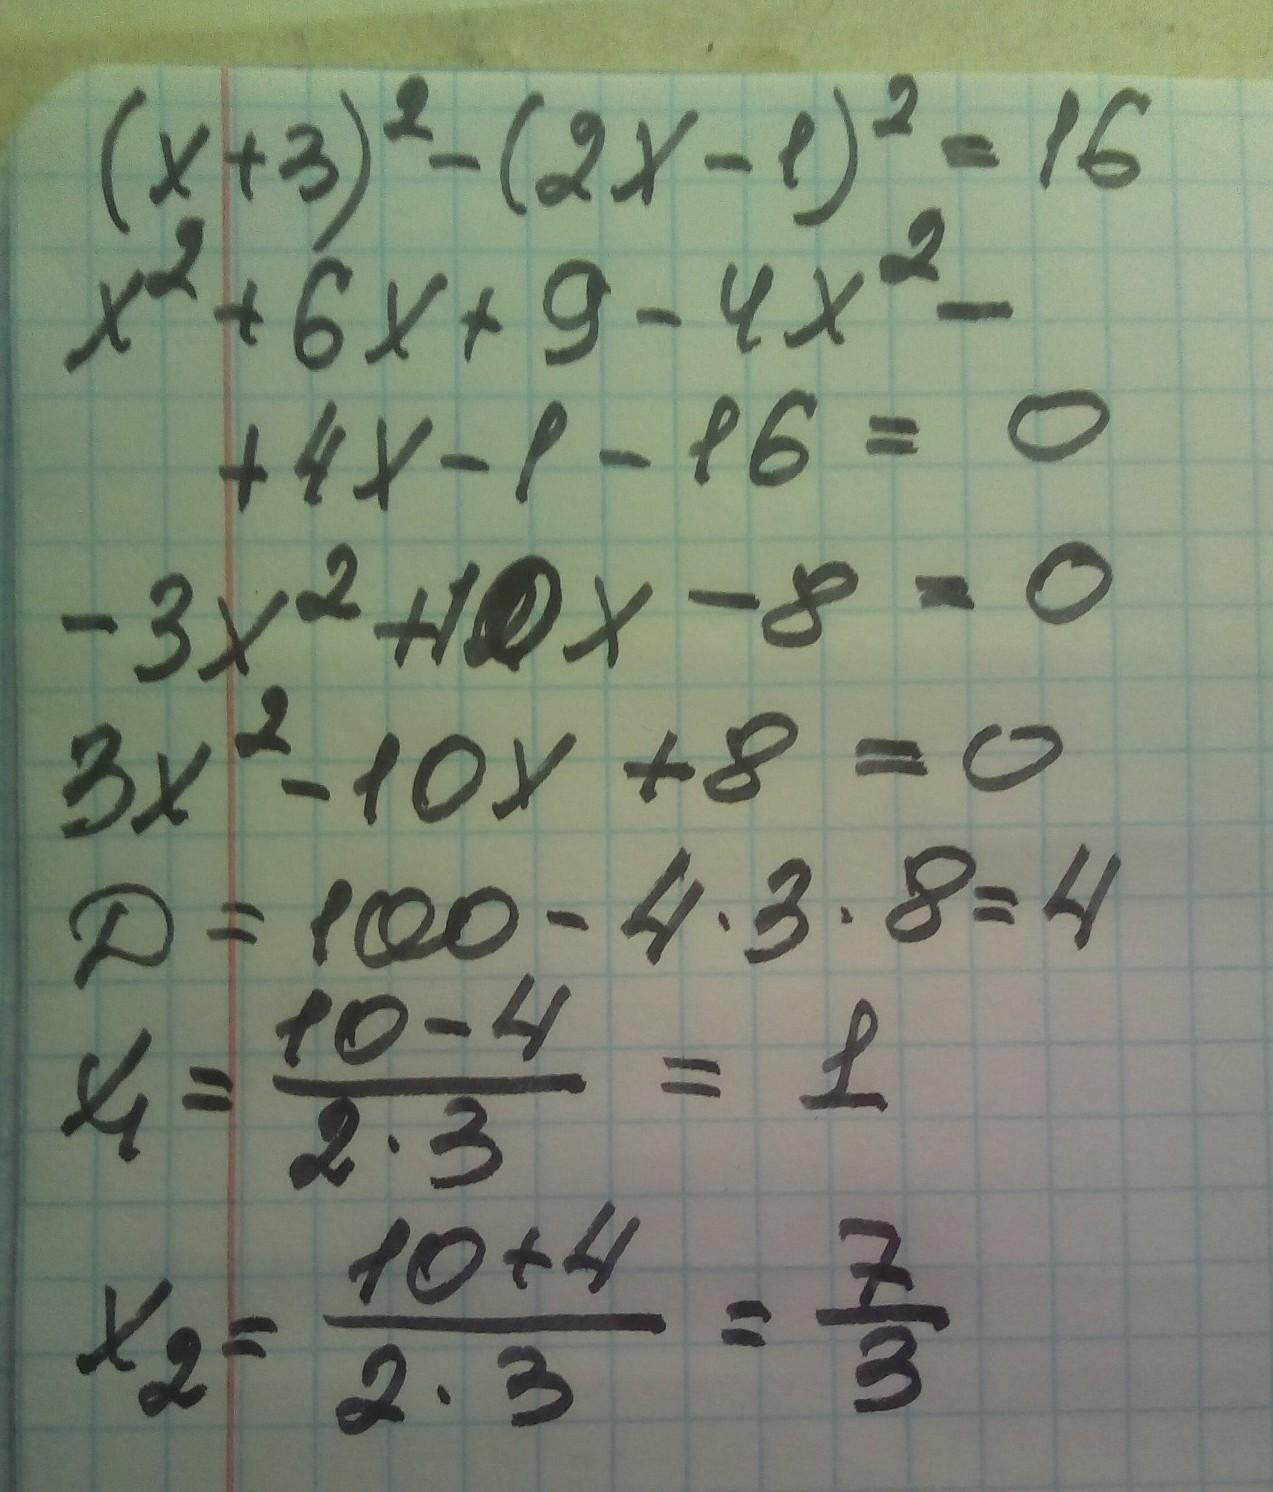 (x+3)² - (2x - 1)² = 16
x² + 6x + 9 - 4x² -
+ 4x - 1 - 16 = 0
-3x² + 10x - 8 = 0
3x² - 10x + 8 = 0
D = 100 - 4 · 3 · 8 = 4
x₁ = (10 - 4)/(2 · 3) = 1
x₂ = (10 + 4)/(2 · 3) = 7/3